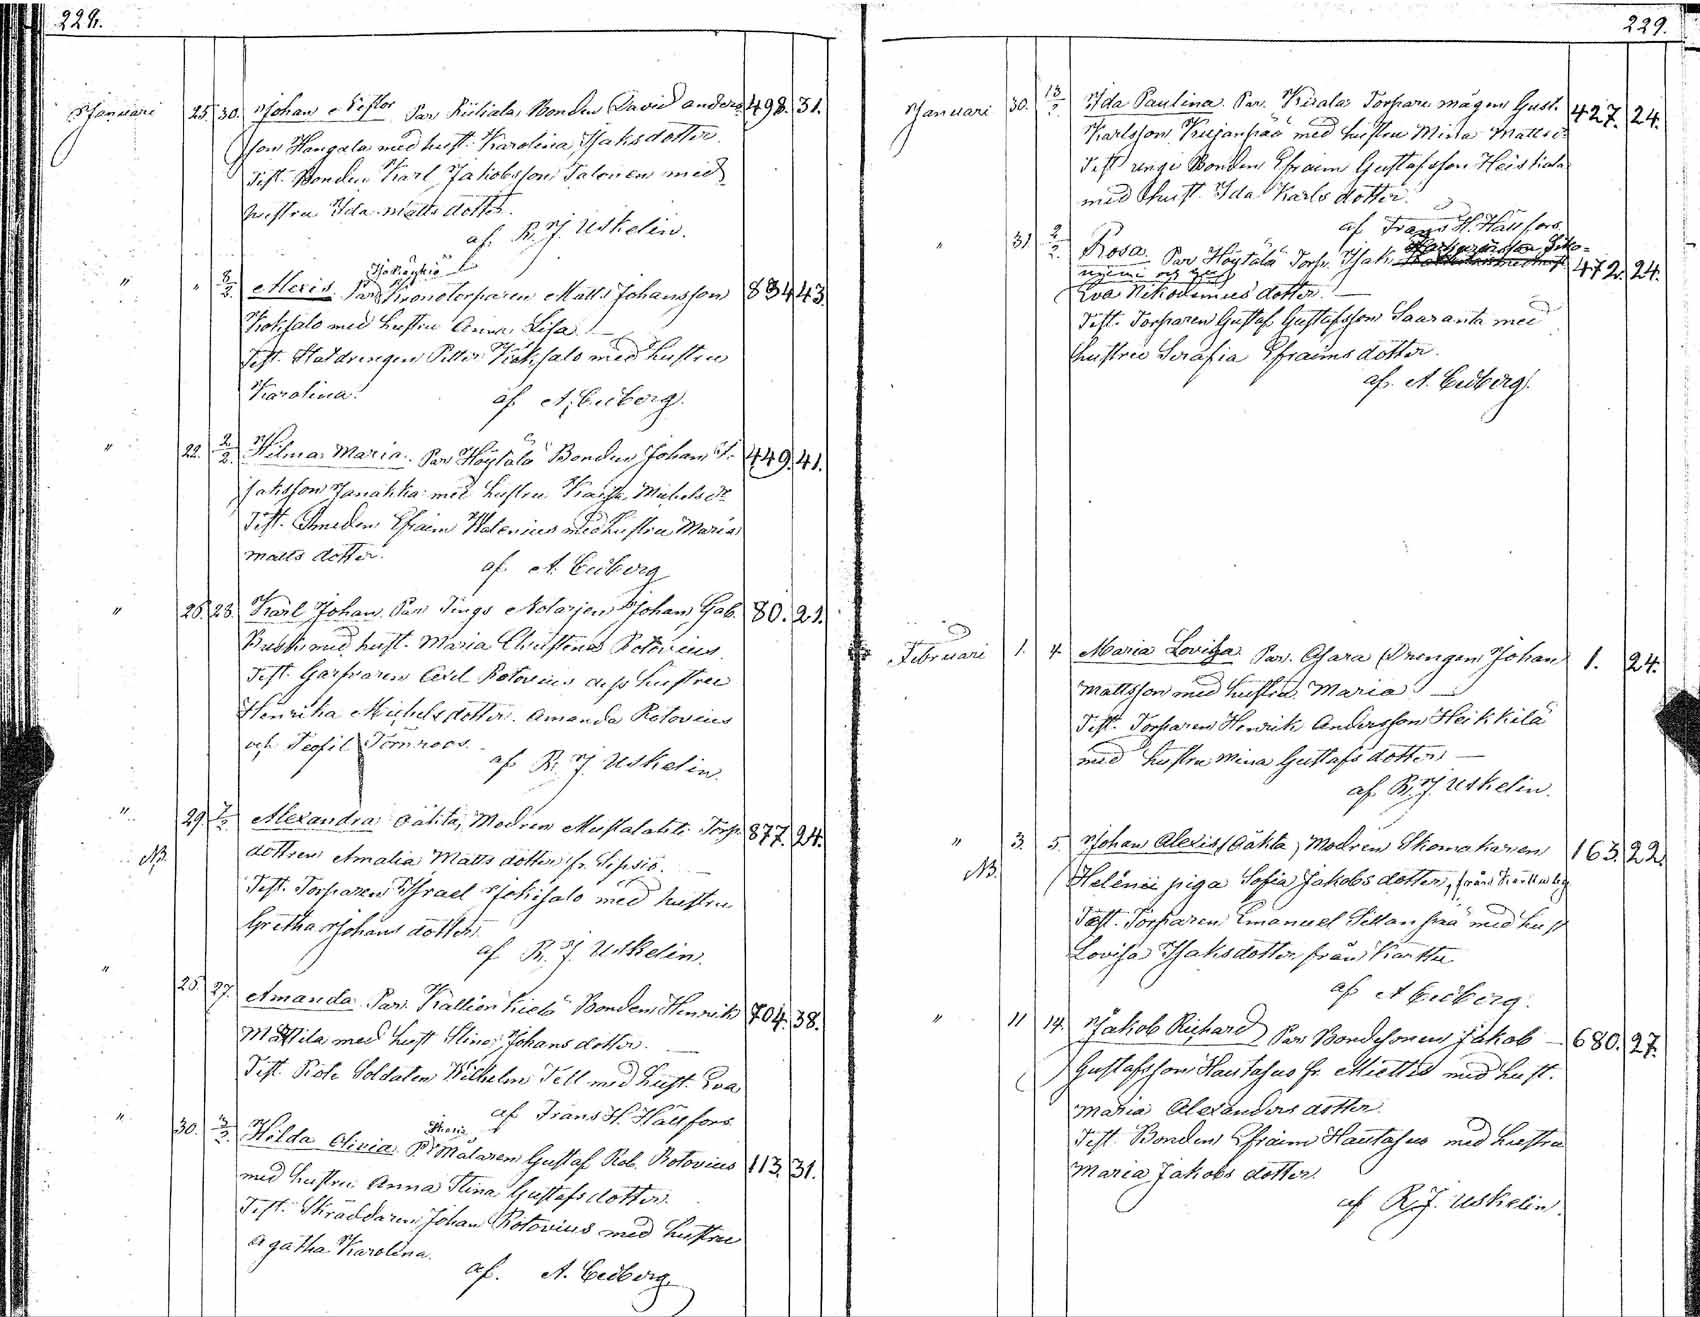 228.
Januari 25. 30. Johan Nestor Par Riihiala Bonden David anders- 498. 31.
son Hangala med hust. Karolina Isaksdotter.
Test. Bonden Karl Jakobsson Talonen med
hustru Ida Matts dotter.
af R. J. Uskelin.
" " 8/2 Alexis. Par Kronotorparen Matts Johansson 834 43.
Kokisalo med hustru Anna Lisa. —
Test. Petter Kokisalo med hustru
Karolina. af A. Ceder­berg.
" 22. 2/2. Hilma Maria. Par Höytälä Bonden Johan I- 449. 41.
saksson Janakka med hustru Kaisa Michels dr
Test. Smeden Efraim Walenius med hustru Maria
Matts dotter. af A. Cederberg
" 26. 28. Karl Johan. Par Tings Notarien Johan Gab. 80. 21.
Busk med hust. Maria Christina Rotovius.
Test. Garfvaren Axel Rotovius dess hustru
Henrika Michelsdotter. Amanda Rotovius
och Teofil Törnroos.
af R. J. Uskelin.
" 29. 7/2 Alexandra oäkta, Modren Mustalahti Torp. 877. 24.
NB. dottren Amalia Matts dotter fr.
Test. Torparen Israel Jokisalo med hustru
Gretha Johans dotter.
af R. J. Uskelin.
" 25. 27. Amanda. Par. Kallionkieli Bonden Henrik 704. 38.
Mattila med hust Stina Johans dotter. —
Test. Rote Soldaten Wilhelm Tell med hust. Eva
af Frans H. Hällfors.
" 30. 3/2. Hilda Olivia Pr Målaren Gustaf Rob. Rotovius 113. 31.
med hustru Anna Stina Gustafs dotter.
Test. Skräddaren Johan Rotovius med hustru
Agatha Karolina.
af. A. Cederberg
229.
Januari 30. 13/2 Ida Paulina. Par. Kirala Torpare mågen Gust. 427. 24.
Karlsson Kujanpää med hustru Mina Matts d.
Test unge Bonden Efraim Gustafsson Heiskala
med hust. Ida Karls dotter.
af Frans H. Hällfors.
" 31. 2/2 Rosa. Par Höytälä Torp. Isak 472. 24.
Eva Nikodemus dotter. —
Test. Torparen Gustaf Gustafsson Sauranta med
hustru Serafia Efraims dotter.
af. A. Cederberg.
Februari 1. 4. Maria Lovisa Par. Osara Drengen Johan 1. 24.
Mattsson med hustru Maria —
Test. Torparen Henrik Andersson Heikkilä
med hustru Mina Gustafs dotter. —
af R. J. Uskelin.
" 3. 5. Johan Alexis (oäkta, Modren Skomakaren 163. 22.
NB. Helenii piga Sofia Jakobs dotter, från
Test. Torparen Emanuel Sillanpää med hust
Lovisa Isaksdotter från Karttu
af A Cederberg.
" 11 14. Jakob Richard Par Bondesonen Jakob — 680. 27.
Gustafsson Hautasuo fr. Miettis med hust.
Maria Alexanders dotter.
Test. Bonden Efraim Hautasuo med hustru
Maria Jakobs dotter.
af R. J. Uskelin.